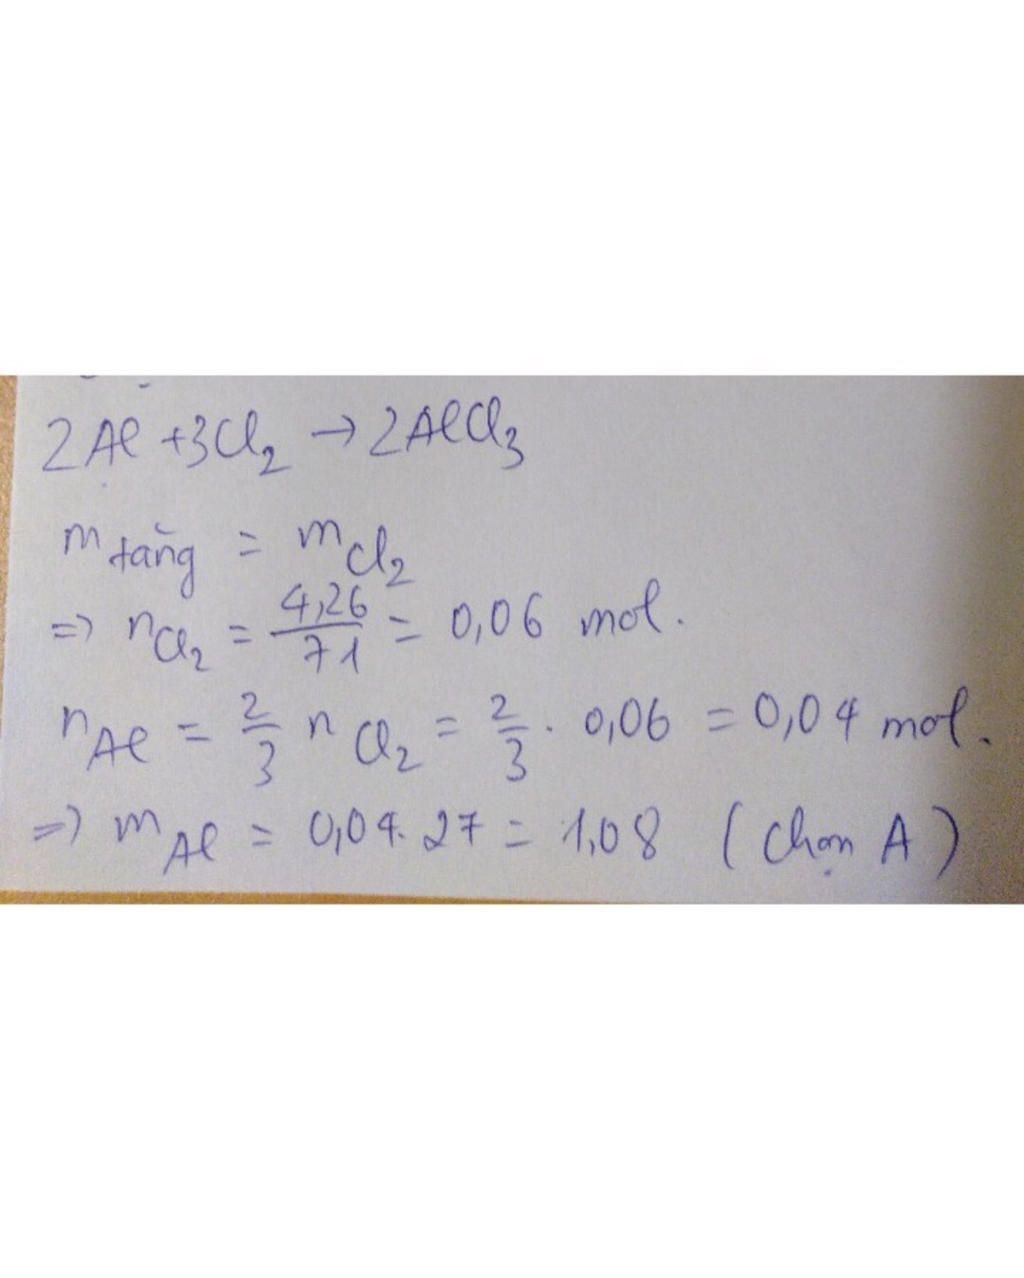 2Al + 3Cl₂ → 2AlCl₃
m tăng = m Cl₂
=> n Cl₂ = 4,26/71 = 0,06 mol.
n Al = 2/3 n Cl₂ = 2/3 . 0,06 = 0,04 mol.
=> m Al = 0,04. 27 = 1,08 (Chọn A)